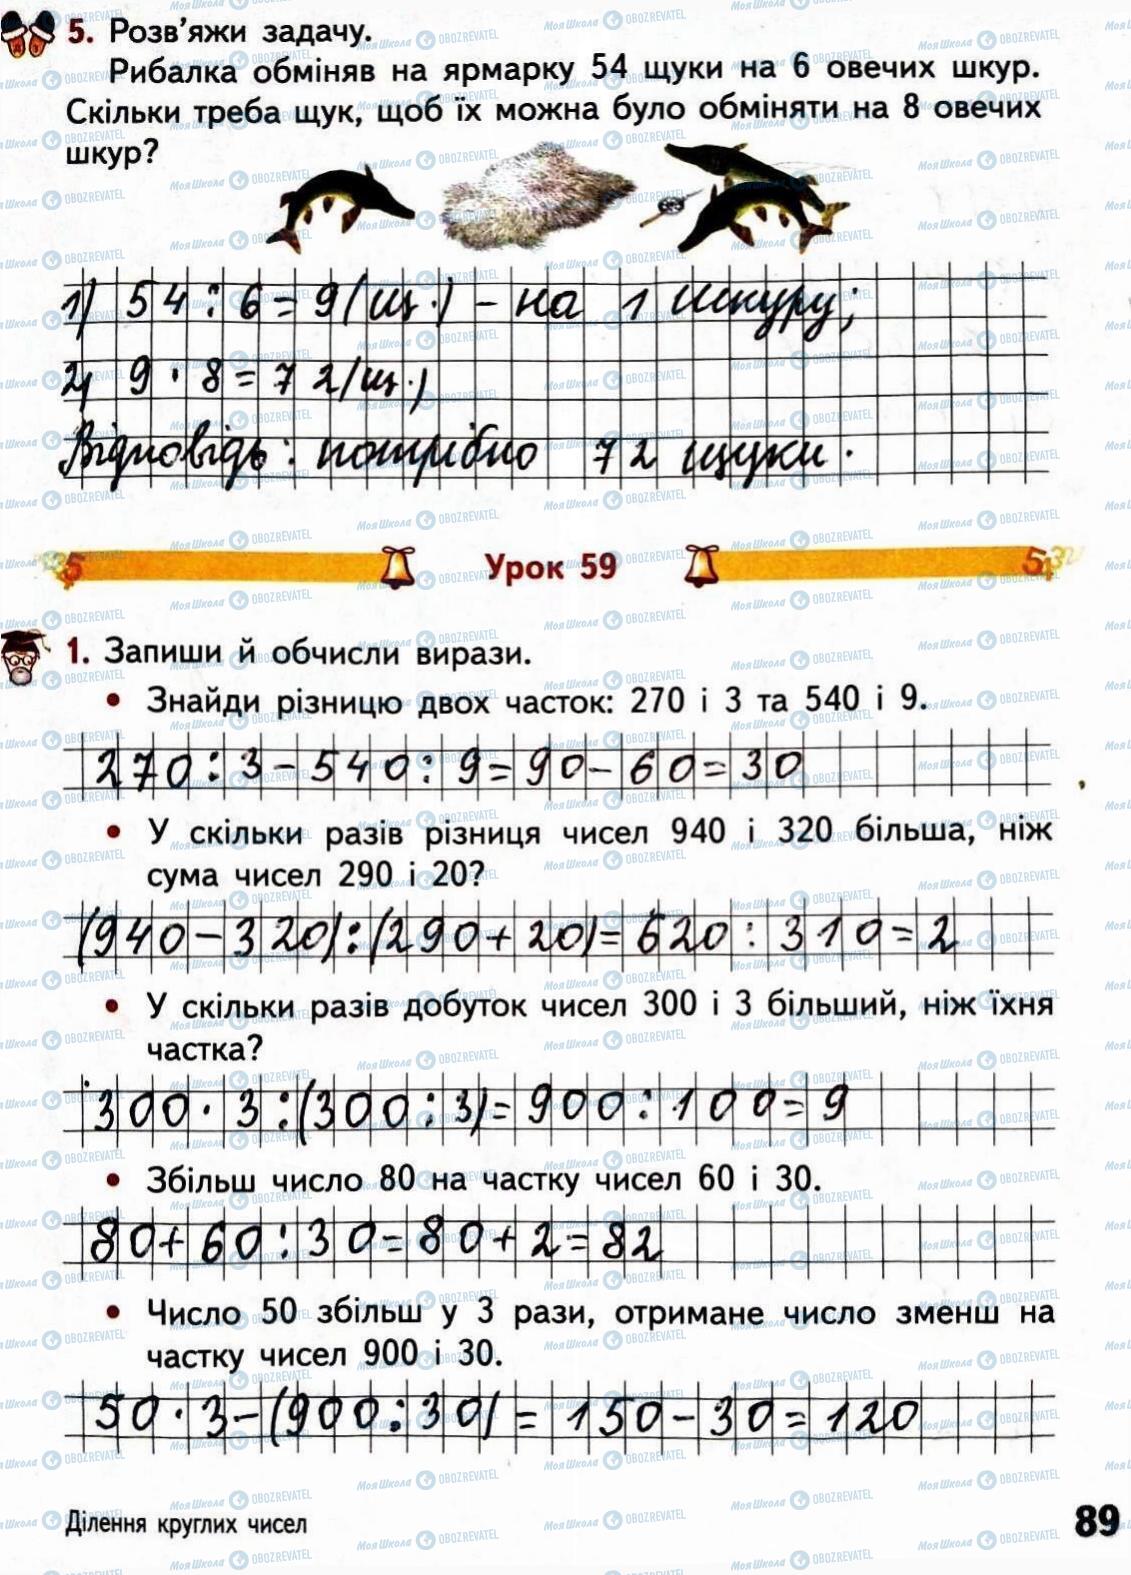 5. Розв'яжи задачу.
Рибалка обміняв на ярмарку 54 щуки на 6 овечих шкур.
Скільки треба щук, щоб їх можна було обміняти на 8 овечих
шкур?
1) 54 : 6 = 9 (щ.) - на 1 шкуру;
2) 9 · 8 = 72 (щ.)
Відповідь: потрібно 72 щуки.
Урок 59
1. Запиши й обчисли вирази.
• Знайди різницю двох часток: 270 і 3 та 540 і 9.
270 : 3 - 540 : 9 = 90 - 60 = 30
• У скільки разів різниця чисел 940 і 320 більша, ніж
сума чисел 290 і 20?
(940 - 320) : (290 + 20) = 620 : 310 = 2
• У скільки разів добуток чисел 300 і 3 більший, ніж їхня
частка?
300 · 3 : (300 : 3) = 900 : 100 = 9
• Збільш число 80 на частку чисел 60 і 30.
80 + 60 : 30 = 80 + 2 = 82
• Число 50 збільш у 3 рази, отримане число зменш на
частку чисел 900 і 30.
50 · 3 - (900 : 30) = 150 - 30 = 120
Ділення круглих чисел
89
МояШкола OBOZREVATEL